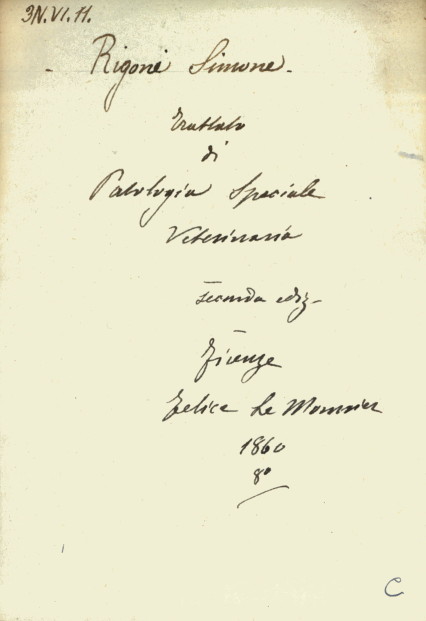 3N.VI.11.
Rigoni Simone.
Trattato
di
Patologia Speciale
Veterinaria
seconda ediz-
Firenze
Felice Le Monnier
1860
8º
C